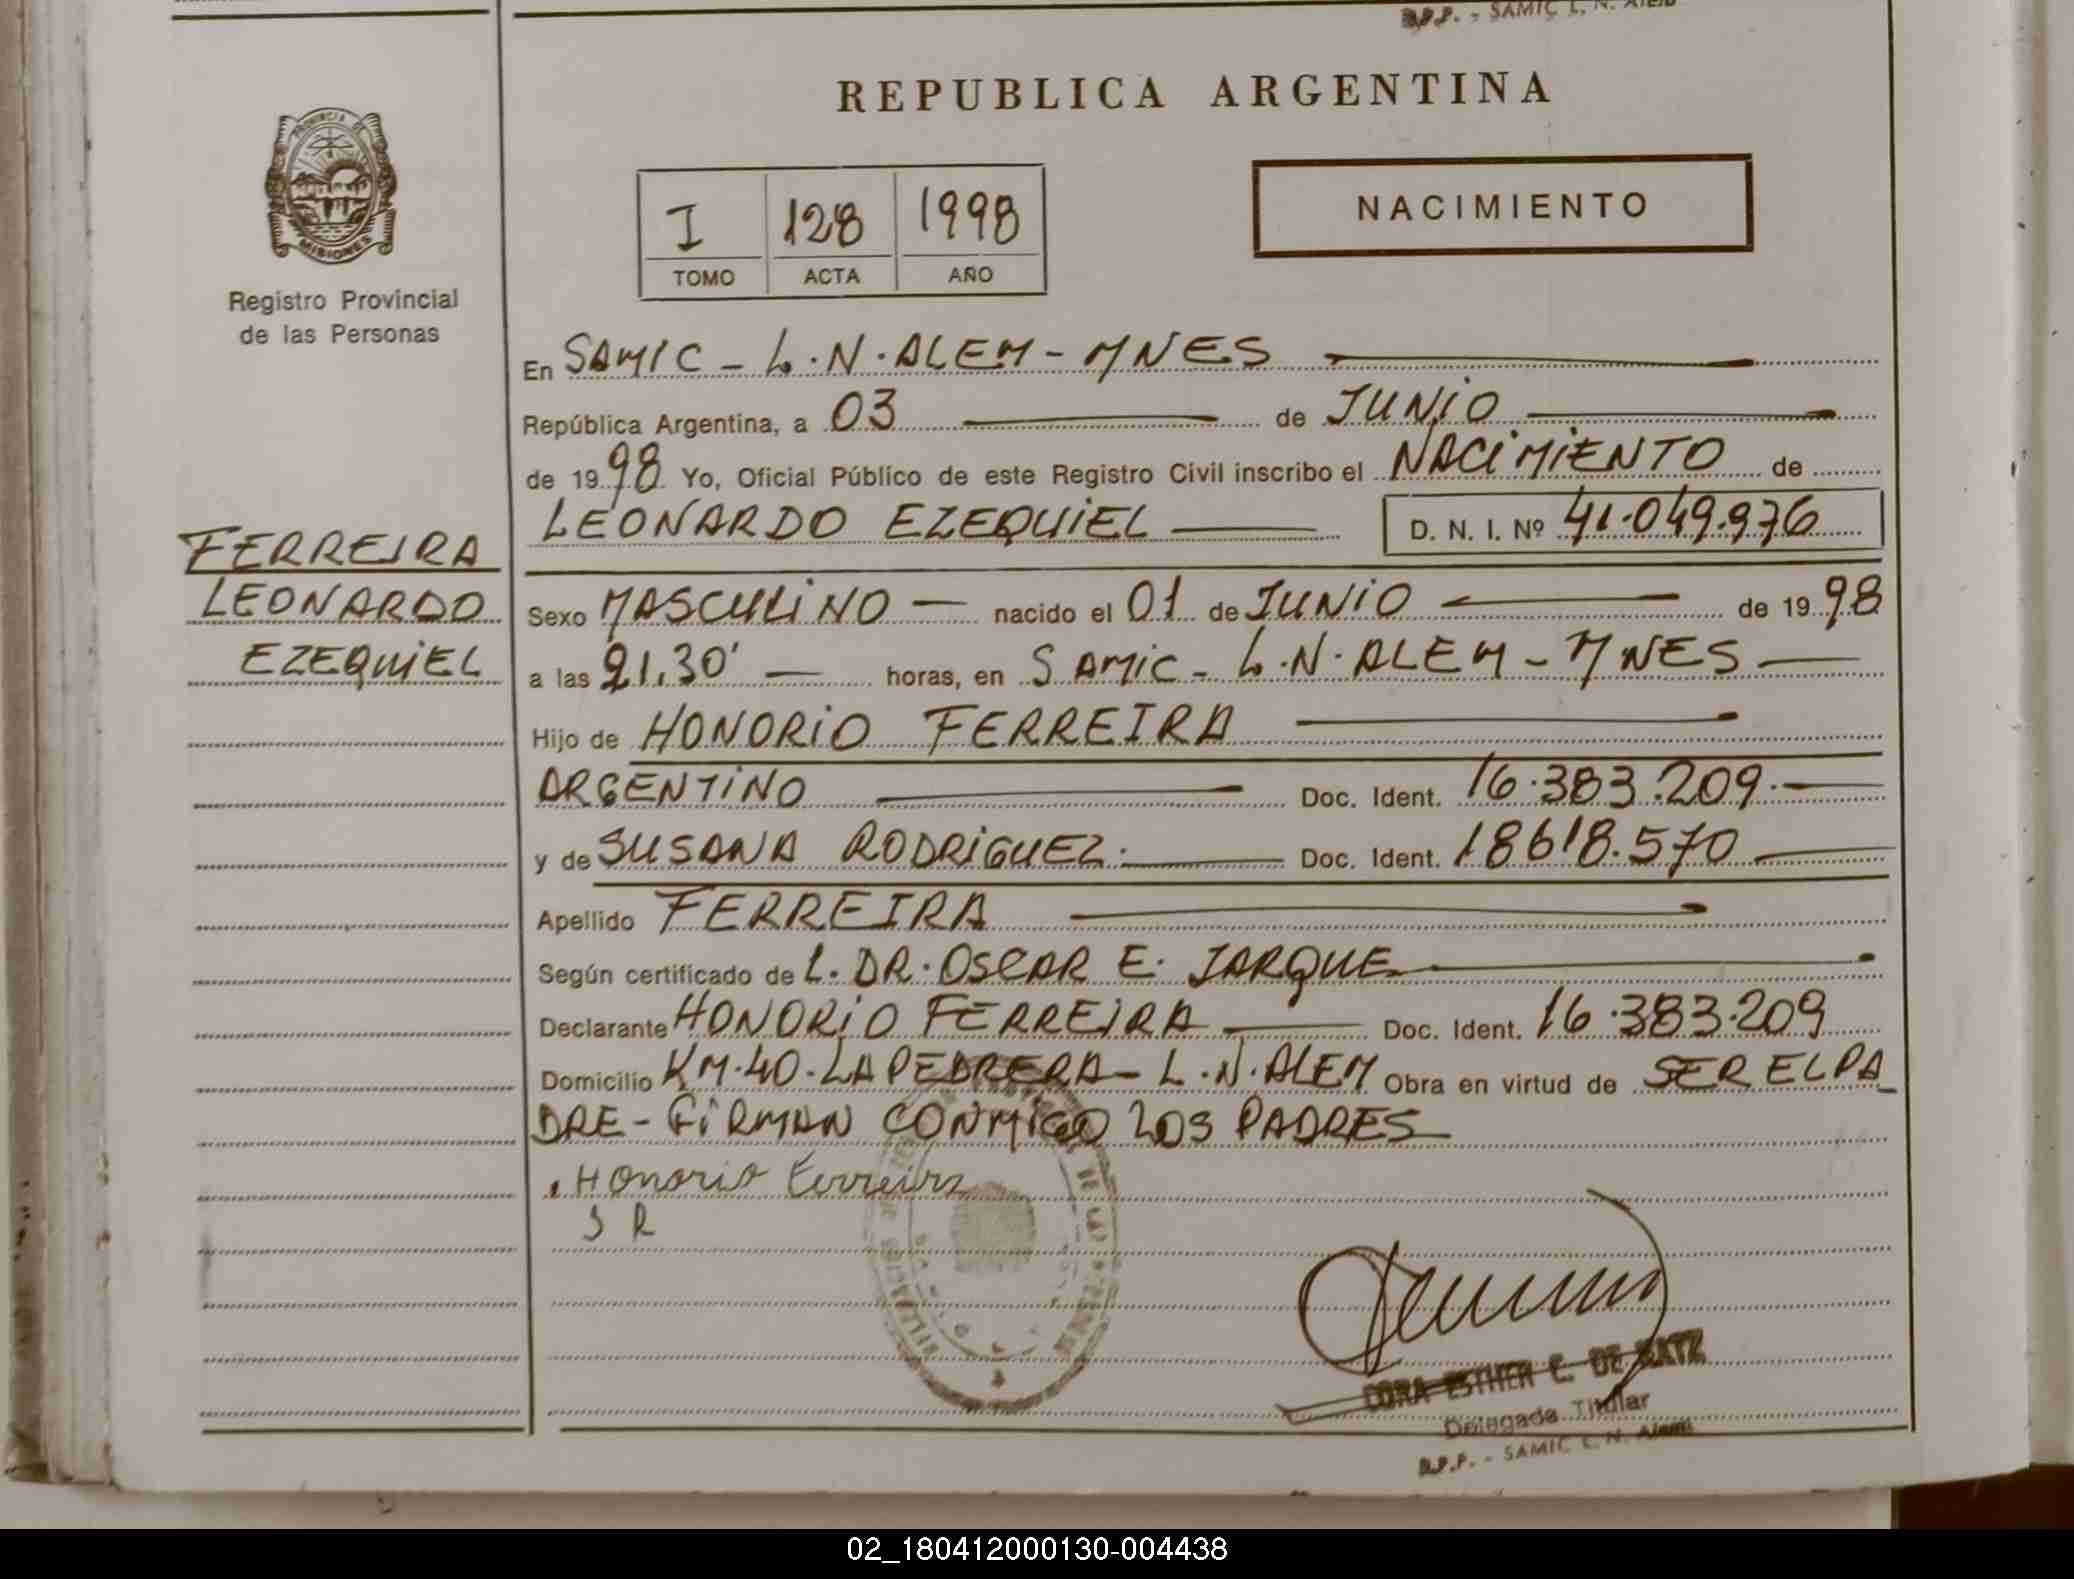 D.P.P. - SAMIC L. N. Alem
REPUBLICA ARGENTINA
PROVINCIA DE
MISIONES
Registro Provincial
de las Personas
I 128 1998
TOMO ACTA AÑO
NACIMIENTO
En SAMIC - L.N. ALEM - MNES
República Argentina, a 03 de JUNIO
de 1998 Yo, Oficial Público de este Registro Civil inscribo el NACIMIENTO de
LEONARDO EZEQUIEL D. N. I. Nº 41.049.976
FERREIRA
LEONARDO
EZEQUIEL
Sexo MASCULINO nacido el 01 de JUNIO de 1998
a las 21,30' horas, en SAMIC - L.N. ALEM - MNES
Hijo de HONORIO FERREIRA
ARGENTINO Doc. Ident. 16.383.209.
y de SUSANA RODRIGUEZ. Doc. Ident. 18618.570
Apellido FERREIRA
Según certificado de L. DR. OSCAR E. JARQUE
Declarante HONORIO FERREIRA Doc. Ident. 16.383.209
Domicilio KM.40. LA PEDRERA - L.N. ALEM Obra en virtud de SER EL PA
DRE - FIRMAN CONMIGO LOS PADRES
Honorio Ferreira
S R
DE LAS
CORA ESTHER C. DE BATZ
Delegada Titular
D.P.P. - SAMIC L. N. Alem
02_180412000130-004438